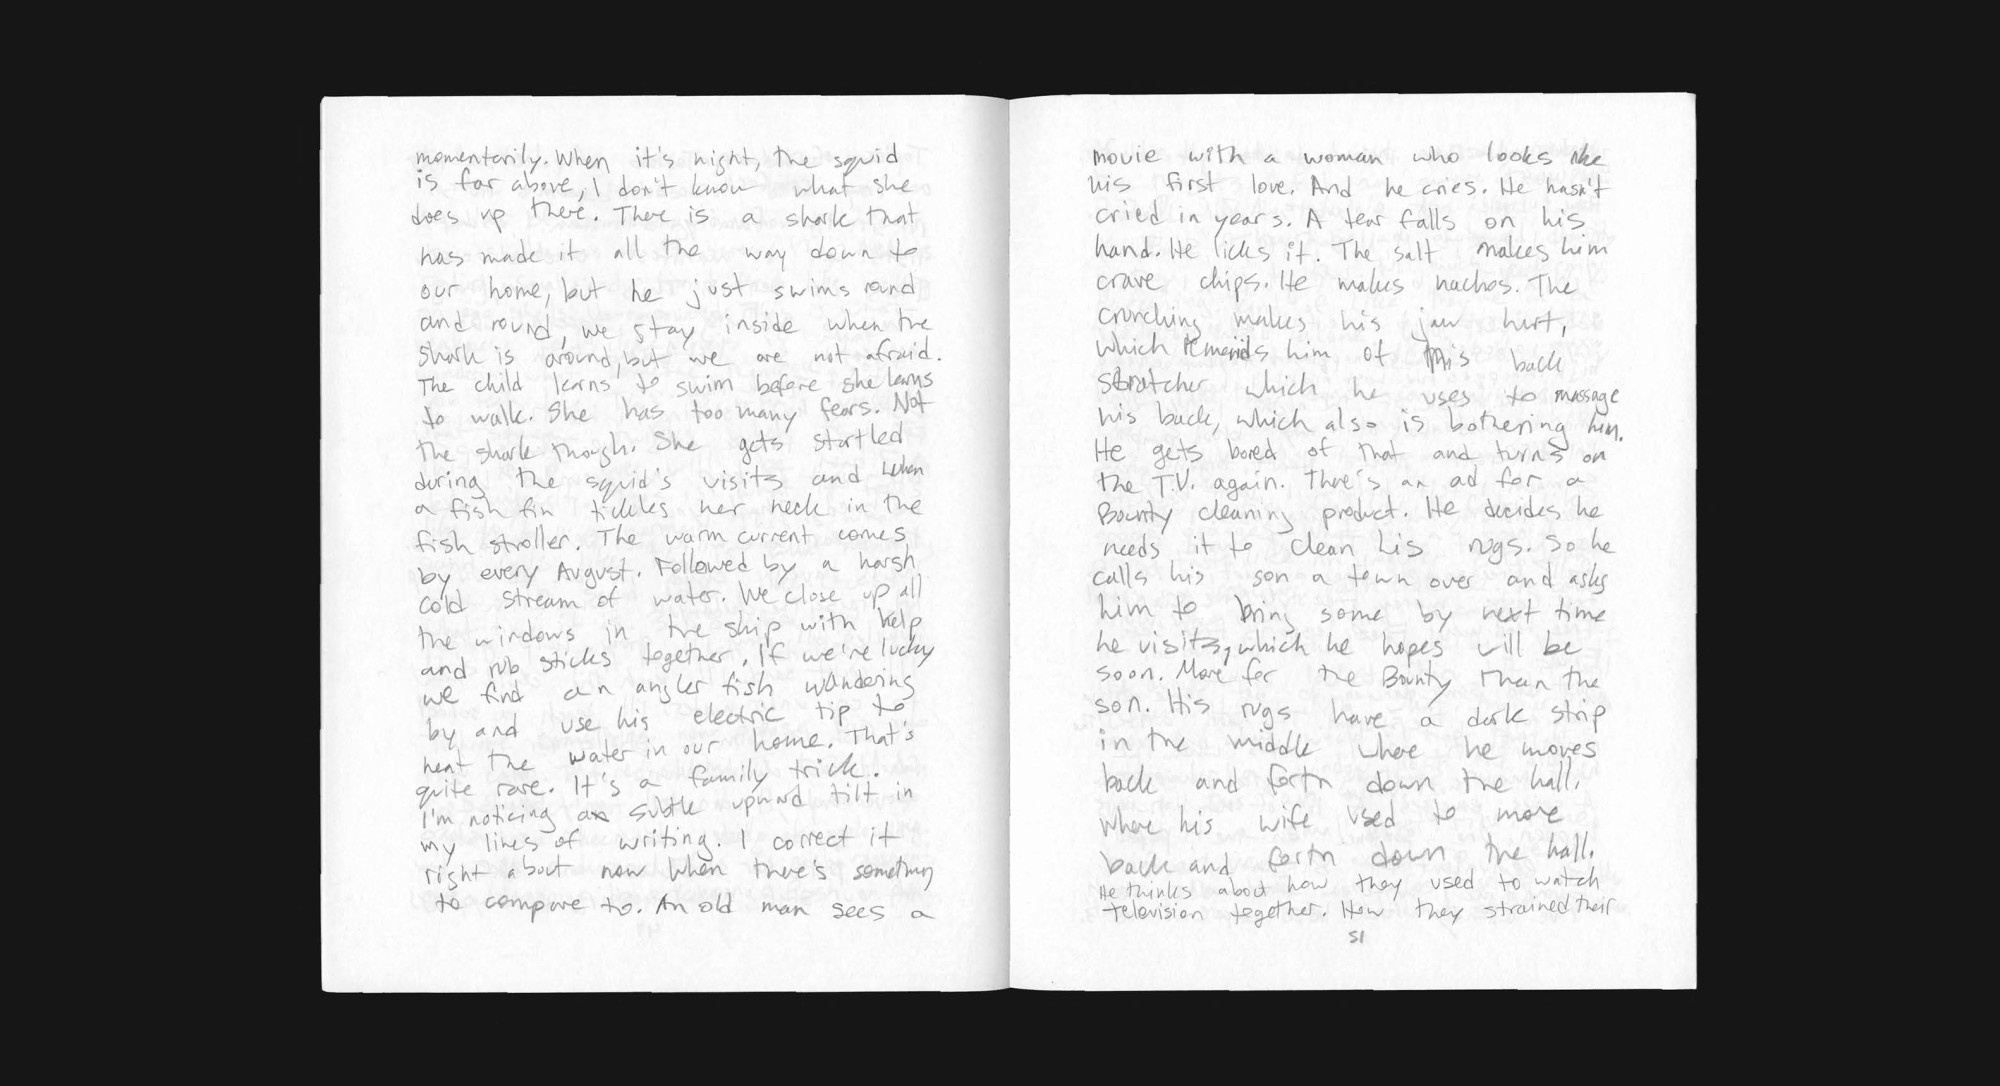 momentarily. When it's night, the squid
is far above, I don't know what she
does up there. There is a shark that
has made it all the way down to
our home, but he just swims round
and round, we stay inside when the
shark is around, but we are not afraid.
The child learns to swim before she learns
to walk. She has too many fears. Not
the shark though. She gets startled
during the squid's visits and when
a fish fin tickles her neck in the
fish stroller. The warm current comes
by every August. Followed by a harsh
cold stream of water. We close up all
the windows in the ship with kelp
and rub sticks together. If we're lucky
we find an angler fish wandering
by and use his electric tip to
heat the water in our home. That's
quite rare. It's a family trick.
I'm noticing a subtle upward tilt in
my lines of writing. I correct it
right about now when there's something
to compare to. An old man sees a
movie with a woman who looks like
his first love. And he cries. He hasn't
cried in years. A tear falls on his
hand. He licks it. The salt makes him
crave chips. He makes nachos. The
crunching makes his jaw hurt,
which reminds him of his back
scratcher which he uses to massage
his back, which also is bothering him.
He gets bored of that and turns on
the T.V. again. There's an ad for a
Bounty cleaning product. He decides he
needs it to clean his rugs. So he
calls his son a town over and asks
him to bring some by next time
he visits, which he hopes will be
soon. More for the Bounty than the
son. His rugs have a dark strip
in the middle where he moves
back and forth down the hall.
Where his wife used to move
back and forth down the hall.
He thinks about how they used to watch
television together. How they strained their
51